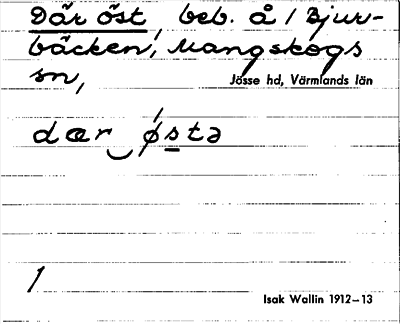 Där öst, beb. å / Bjur-
bäcken, Mangskogs
sn,
Jösse hd, Värmlands län
dær‿ østə
1
Isak Wallin 1912–13